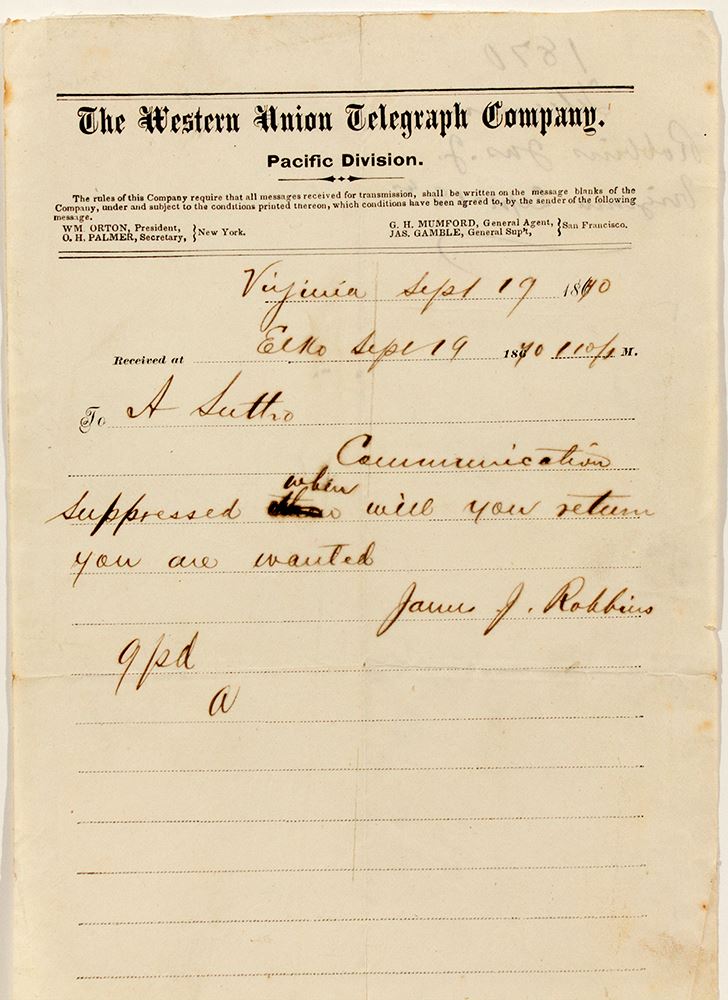 The Western Union Telegraph Company.
Pacific Division.
The rules of this Company require that all messages received for transmission, shall be written on the message blanks of the
Company, under and subject to the conditions printed thereon, which conditions have been agreed to, by the sender of the following
message.
WM. ORTON, President, } New York. G. H. MUMFORD, General Agent, } San Francisco.
O. H. PALMER, Secretary, JAS. GAMBLE, General Sup't,
Virginia Sept 19 1870
Received at Elko Sept 19 1870 M.
To A Sutro
Communication
when
suppressed will you return
you are wanted
James J. Robbins
9 pd
1870
Robbins Jas. J.